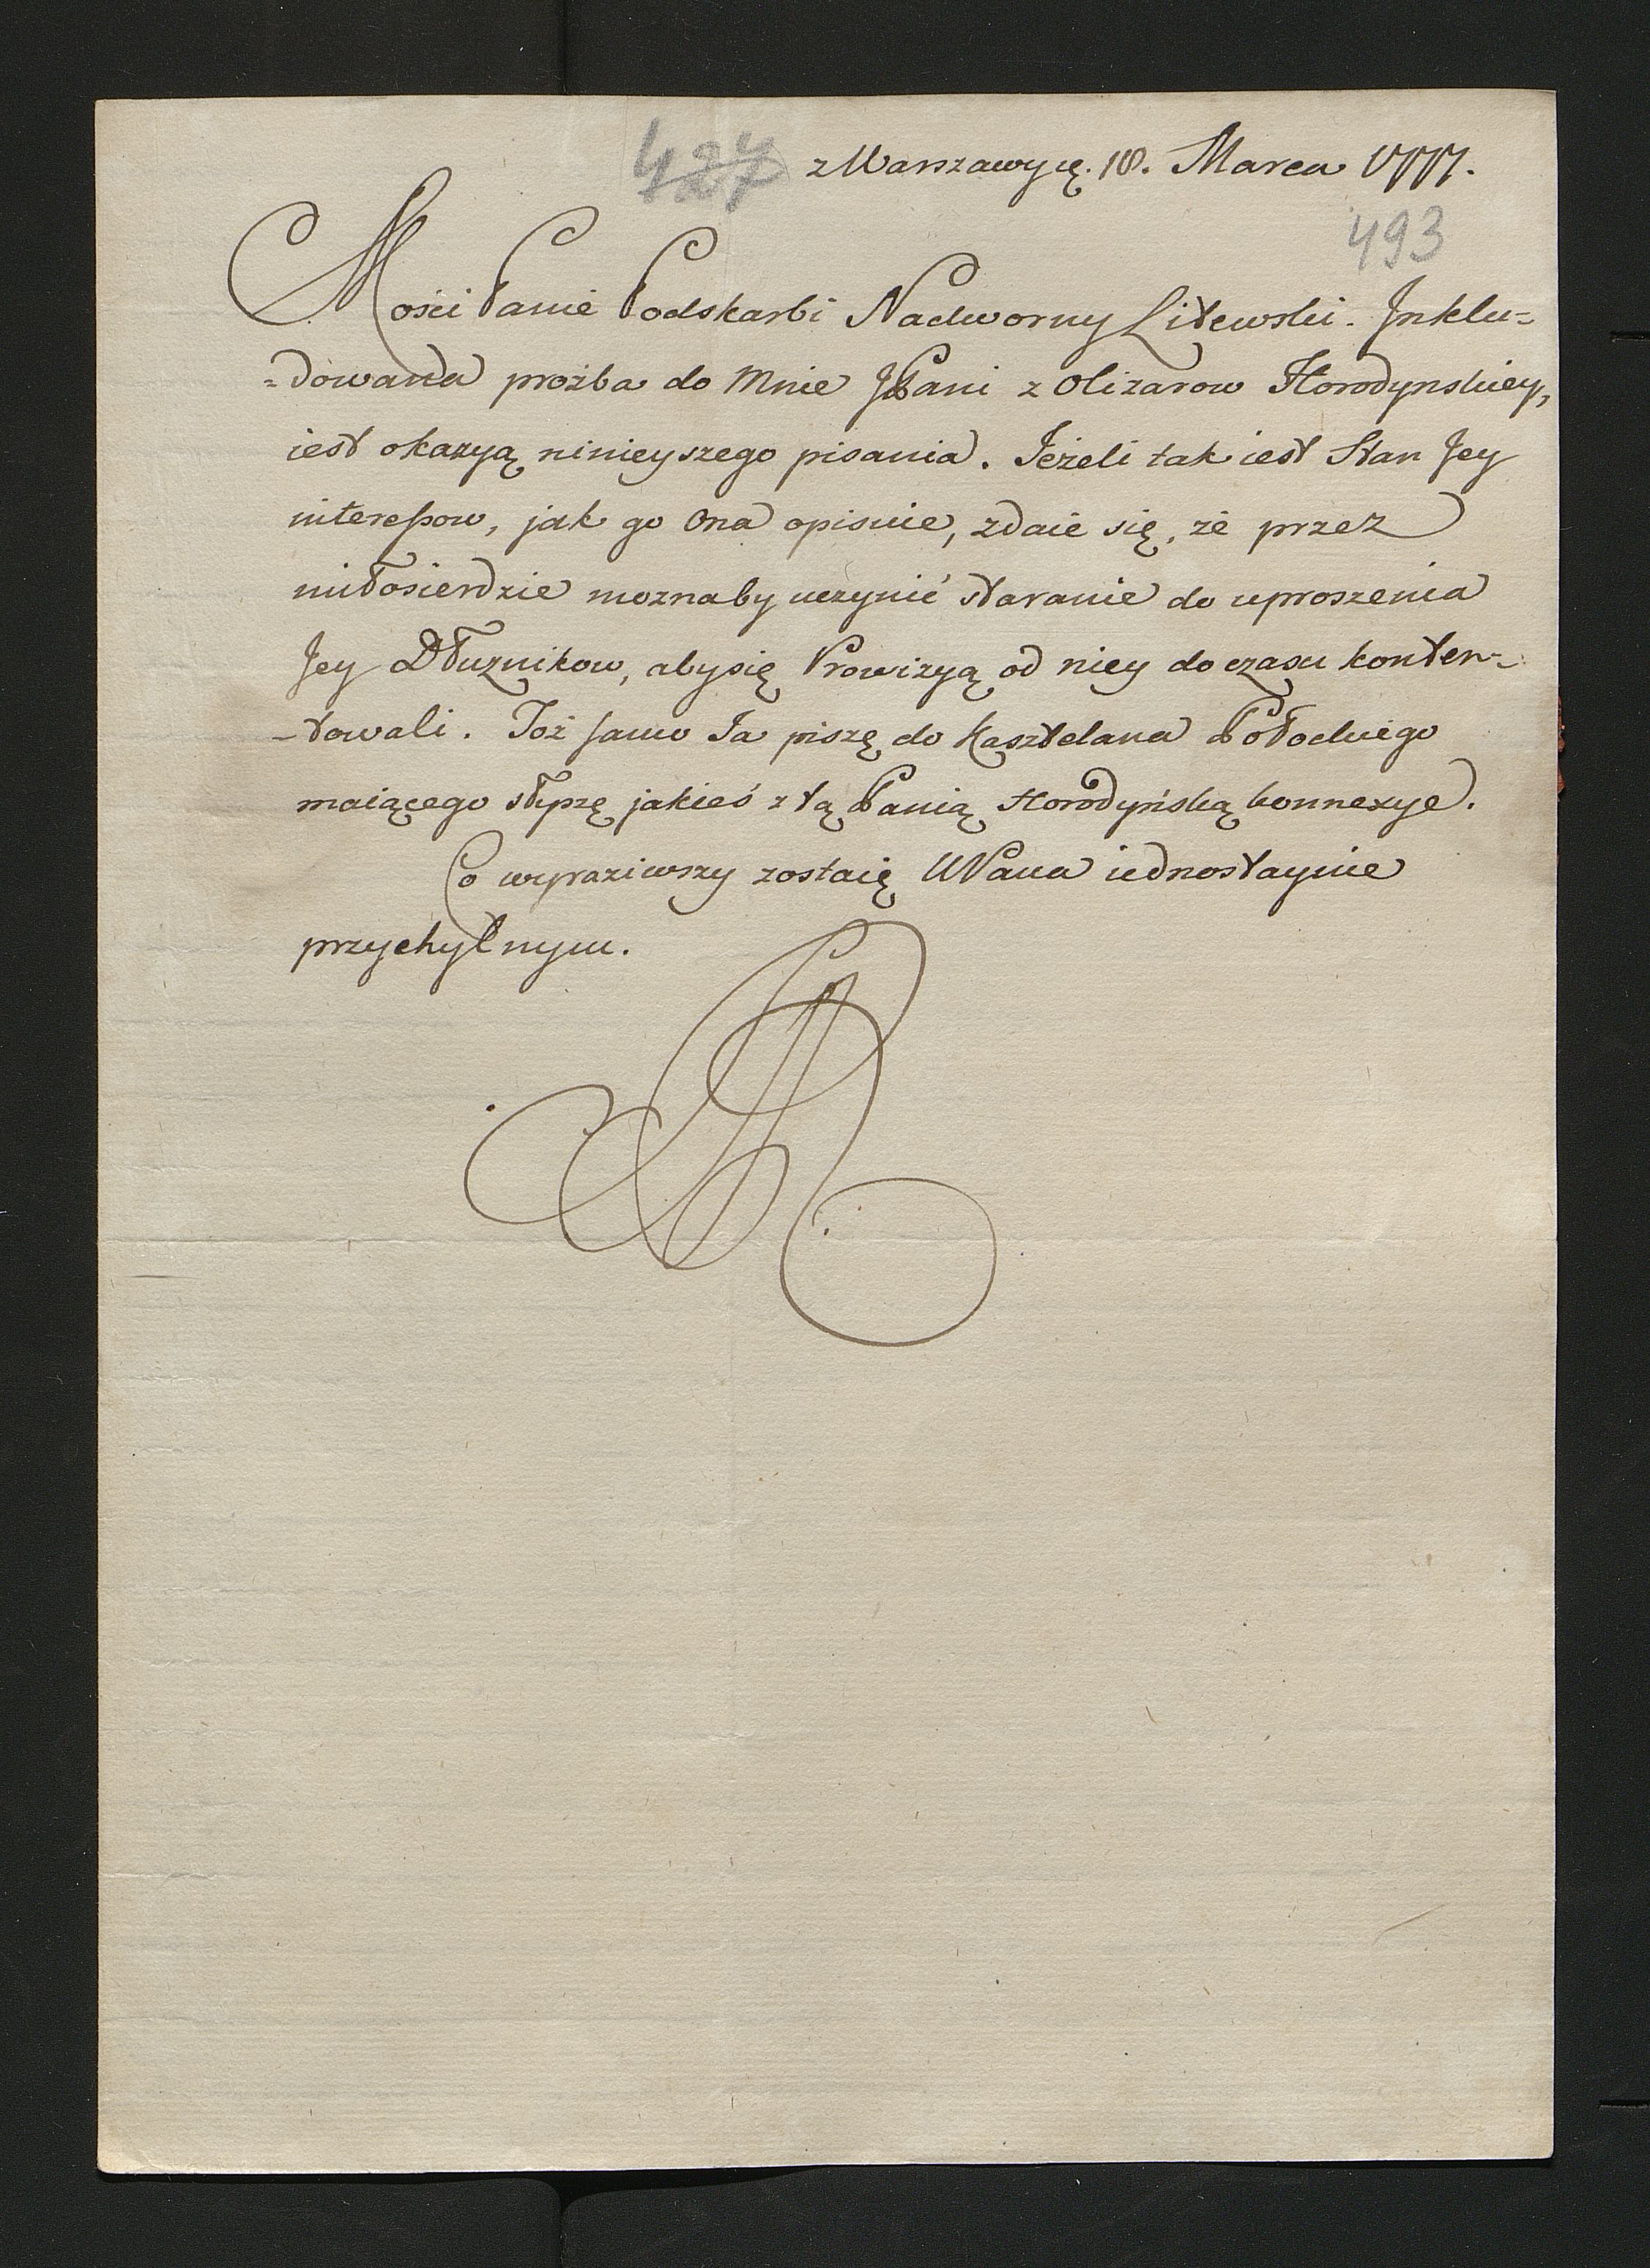 427 z Warszawy ię. 10. Marca 1777.
493
Mości Panie Podskarbi Nadworny Litewski. Inklu=
=dowana proźba do Mnie JPani z Olizarow Horodynskiey,
iest okazyą ninieyszego pisania. Jeżeli tak iest Stan Jey
interessow, jak go Ona opisuie, zdaie się, że przez
miłosierdzie moznaby uczynić staranie do uproszenia
Jey Dłuznikow, aby się Prowizyą od niey do czasu konten-
-towali. Toż samo Ja piszę do Kasztelana Połockiego
maiącego słyszę jakieś z tą Panią Horodyńską konnexye.
Co wyraziwszy zostaię WPana iednostaynie
przychylnym.